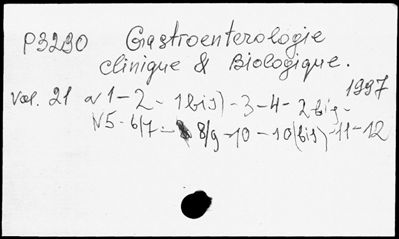 P3230 Gastroenterologie
clinique & Biologique.
1997
Vol. 21 N 1 - 2 - 1 bis) - 3 - 4 - 2 bis -
N5 - 6/7 - 8/9 - 10 - 10(bis) - 11 - 12